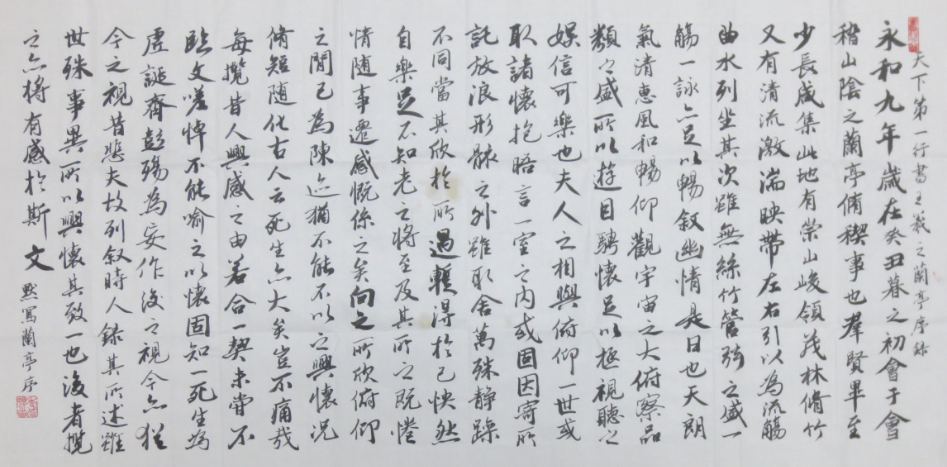 天下第一行書王羲之蘭亭序錄
永和九年歲在癸丑暮之初會于會
稽山陰之蘭亭脩稧事也羣賢畢至
少長咸集此地有崇山峻領茂林脩竹
又有清流激湍映帶左右引以為流觴
曲水列坐其次雖無絲竹管弦之盛一
觴一詠亦足以暢叙幽情是日也天朗
氣清惠風和暢仰觀宇宙之大俯察品
類之盛所以遊目騁懷足以極視聽之
娛信可樂也夫人之相與俯仰一世或
取諸懷抱晤言一室之內或固因寄所
託放浪形骸之外雖取舍萬殊靜躁
不同當其欣於所遇暫得於己怏然
自樂足不知老之將至及其所之既惓
情随事遷感慨係之矣向之所欣俯仰
之間已為陳迹猶不能不以之興懷況
脩短随化古人云死生亦大矣豈不痛哉
每攬昔人興感之由若合一契未嘗不
臨文嗟悼不能喻之以懷固知一死生為
虛誕齊彭殤為妄作後之視今亦猶
今之視昔悲夫故列叙時人錄其所述雖
世殊事異所以興懷其致一也後者攬
之亦將有感於斯文 默寫蘭亭序